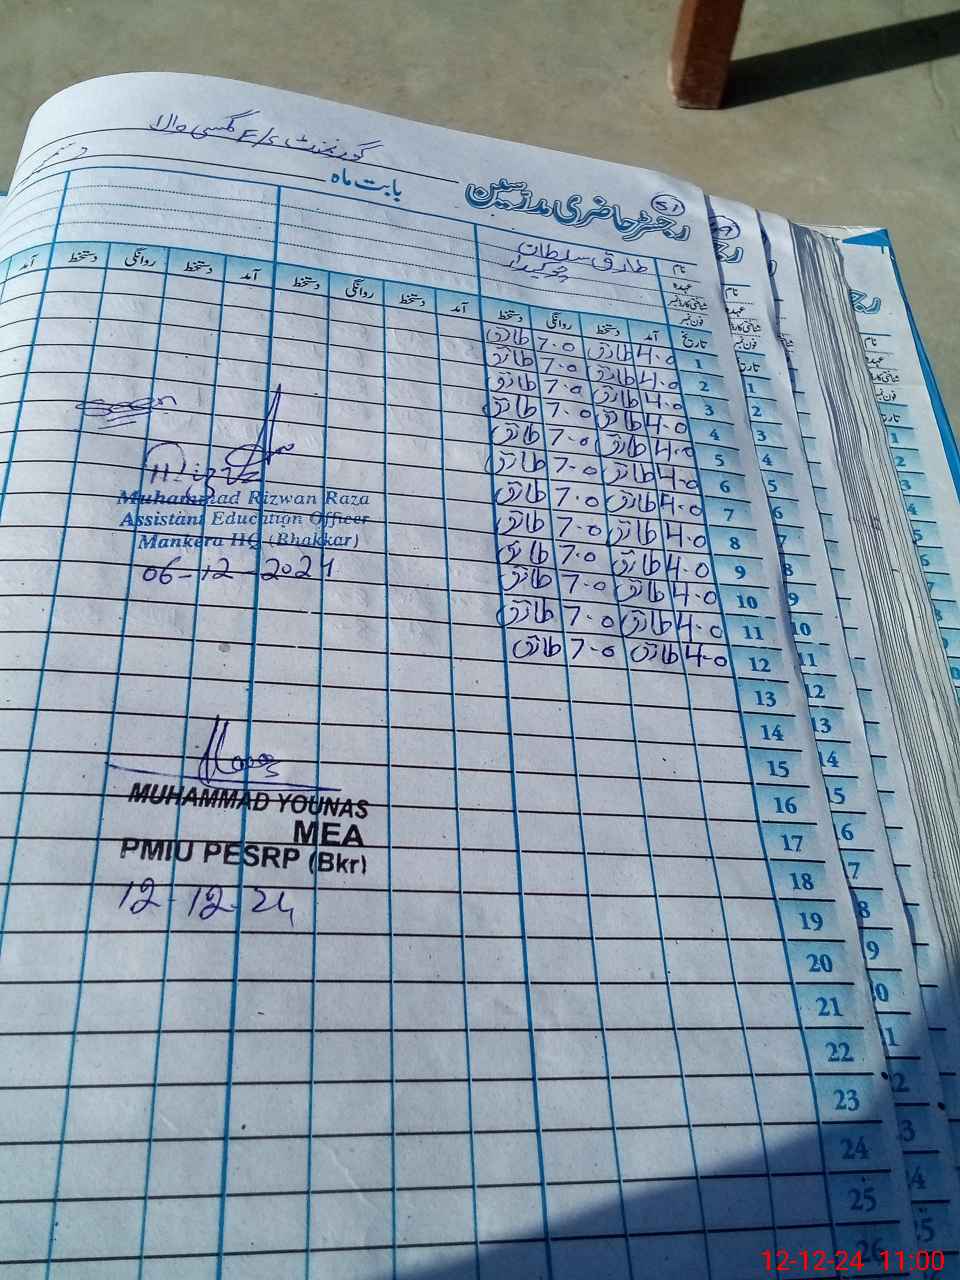 گورنمنٹ E/S گھسی والا
51
رجسٹر حاضری مدرسین
بابت ماہ دسمبر
نام طارق سلطان
عہدہ چوکیدار
شناختی کارڈ نمبر
فون نمبر
تاریخ آمد دستخط روانگی دستخط آمد دستخط روانگی دستخط آمد دستخط روانگی دستخط آمد
1 4.0 طارق 7.0 طارق
2 4.0 طارق 7.0 طارق
3 4.0 طارق 7.0 طارق
4 4.0 طارق 7.0 طارق
5 4.0 طارق 7.0 طارق
6 4.0 طارق 7.0 طارق
7 4.0 طارق 7.0 طارق
8 4.0 طارق 7.0 طارق
9 4.0 طارق 7.0 طارق
10 4.0 طارق 7.0 طارق
11 4.0 طارق 7.0 طارق
12 4.0 طارق 7.0 طارق
13
14
15
16
17
18
19
20
21
22
23
24
25
26
Muhammad Rizwan Raza
Assistant Education Officer
Mankera HQ (Bhakkar)
06-12-2024
MUHAMMAD YOUNAS
MEA
PMIU PESRP (Bkr)
12-12-24
12-12-24 11:00